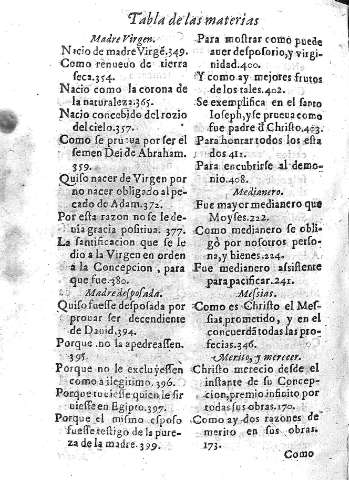 Tabla de las materias
Madre Virgen.
Nacio de madre Virgē.349.
Como renueuo de tierra
seca.354.
Nacio como la corona de
la naturaleza.365.
Nacio concebido del rozio
del cielo.357.
Como se prueua por ser el
semen Dei de Abraham.
359.
Quiso nacer de Virgen por
no nacer obligado al pe-
cado de Adam.372.
Por esta razon no se le de-
uia gracia positiua. 377.
La santificacion que se le
dio a la Virgen en orden
a la Concepcion, para
que fue.380.
Madre desposada.
Quiso fuesse desposada por
prouar ser decendiente
de Dauid.394.
Porque no la apedreassen.
395.
Porque no le excluyessen
como a ilegitimo. 396.
Porque tuuiesse quien le sir
uiesse en Egipto.397.
Porque el mismo esposo
fuesse testigo de la pure-
za de la madre. 399.
Para mostrar como puede
auer desposorio, y virgi-
nidad.400.
Y como ay mejores frutos
de los tales.402.
Se exemplifica en el santo
Ioseph, y se prueua como
fue padre d̄ Christo.403.
Para honrar todos los esta
dos 411.
Para encubrirse al demo-
nio.408.
Medianero.
Fue mayor medianero que
Moyses.222.
Como medianero se obli-
gò por nosotros perso-
na, y bienes.224.
Fue medianero assistente
para pacificar.241.
Messias.
Como es Christo el Mes-
sias prometido, y en el
concuerdā todas las pro-
fecias.346.
Merito, y merecer.
Christo merecio desde el
instante de su Concep-
cion, premio infinito por
todas sus obras.170.
Como ay dos razones de
merito en sus obras.
173.
Como